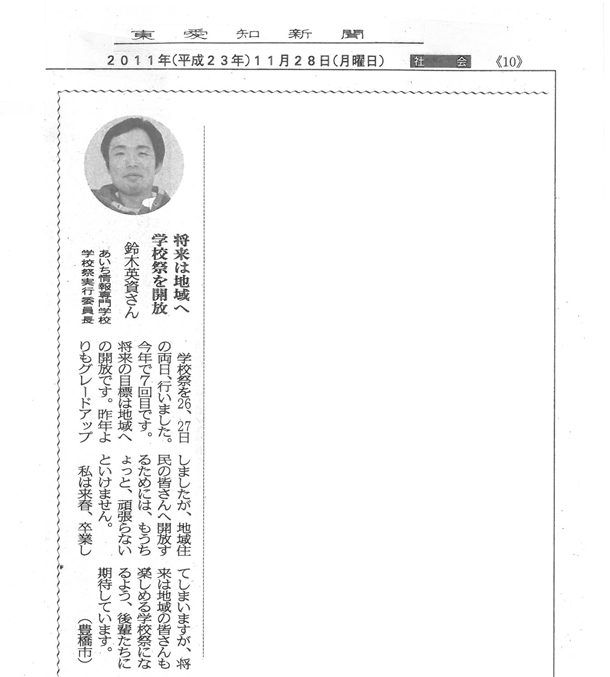 東愛知新聞
2011年(平成23年)11月28日(月曜日) 社会 《10》
将来は地域へ
学校祭を開放
鈴木英資さん
あいち情報専門学校
学校祭実行委員長
学校祭を26、27日
の両日、行いました。
今年で7回目です。
将来の目標は地域へ
の開放です。昨年よ
りもグレードアップ
しましたが、地域住
民の皆さんへ開放す
るためには、もうち
ょっと、頑張らない
といけません。
私は来春、卒業し
てしまいますが、将
来は地域の皆さんも
楽しめる学校祭にな
るよう、後輩たちに
期待しています。
（豊橋市）